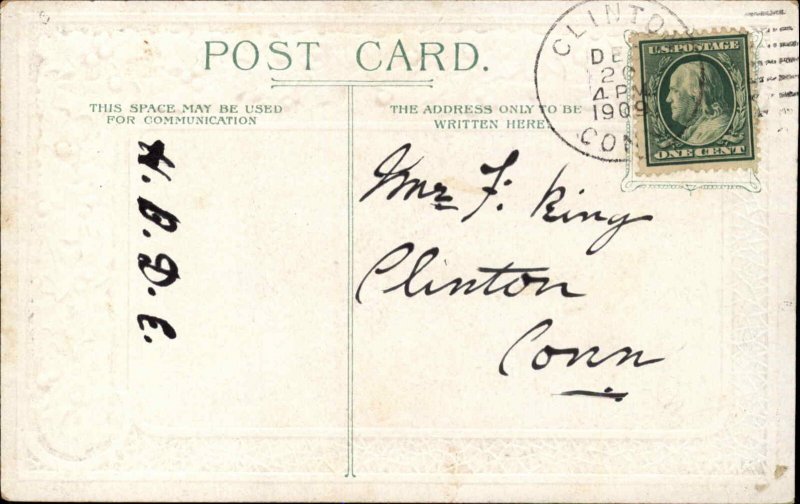 POST CARD.
THIS SPACE MAY BE USED
FOR COMMUNICATION
THE ADDRESS ONLY TO BE
WRITTEN HERE.
CLINTO
DE
4 PM
1909
CON
U.S. POSTAGE
ONE CENT
H. B. D. E.
Mr F. King
Clinton
Conn